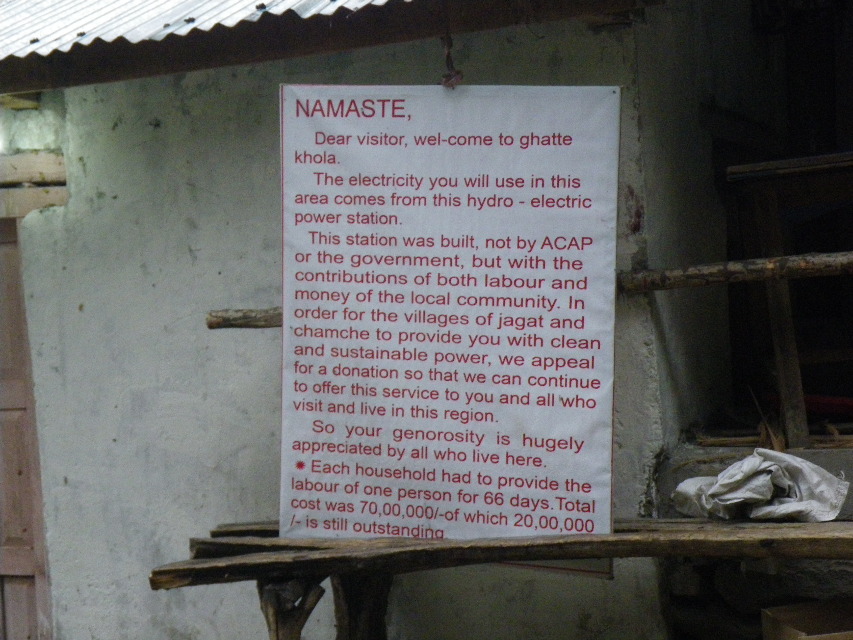 NAMASTE,
Dear visitor, wel-come to ghatte
khola.
The electricity you will use in this
area comes from this hydro - electric
power station.
This station was built, not by ACAP
or the government, but with the
contributions of both labour and
money of the local community. In
order for the villages of jagat and
chamche to provide you with clean
and sustainable power, we appeal
for a donation so that we can continue
to offer this service to you and all who
visit and live in this region.
So your genorosity is hugely
appreciated by all who live here.
• Each household had to provide the
labour of one person for 66 days.Total
cost was 70,00,000/-of which 20,00,000
/- is still outstanding